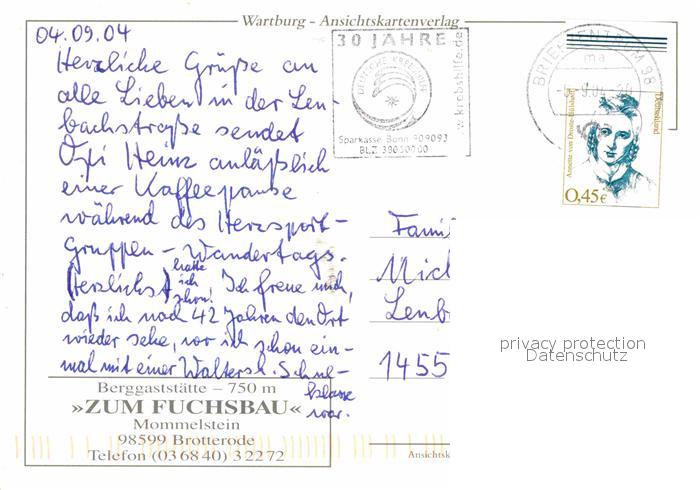 Wartburg - Ansichtskartenverlag
04.09.04
Herzliche Grüße an
alle Lieben in der Len-
bachstraße sendet
Opi Heinz anläßlich
einer Kaffeepause
während des Herzsport-
gruppen-Wandertags.
(Herzlichst) hatte
ich
schon! Ich freue mich,
daß ich nach 42 Jahren den Ort
wieder sehe, wo ich schon ein-
mal mit einer Waltersh. Schul-
klasse
war.
Berggaststätte – 750 m
»ZUM FUCHSBAU«
Mommelstein
98599 Brotterode
Telefon (03 68 40) 3 22 72
30 JAHRE
DEUTSCHE KREBSHILFE
w.krebshilfe.de
Sparkasse Bonn 909093
BLZ 38050000
BRIEFZENTRUM 98
ma
Annette von Droste-Hülshoff
Deutschland
0,45€
Famil
Mich
Lenb
1455
privacy protection
Datenschutz
Ansichtsk